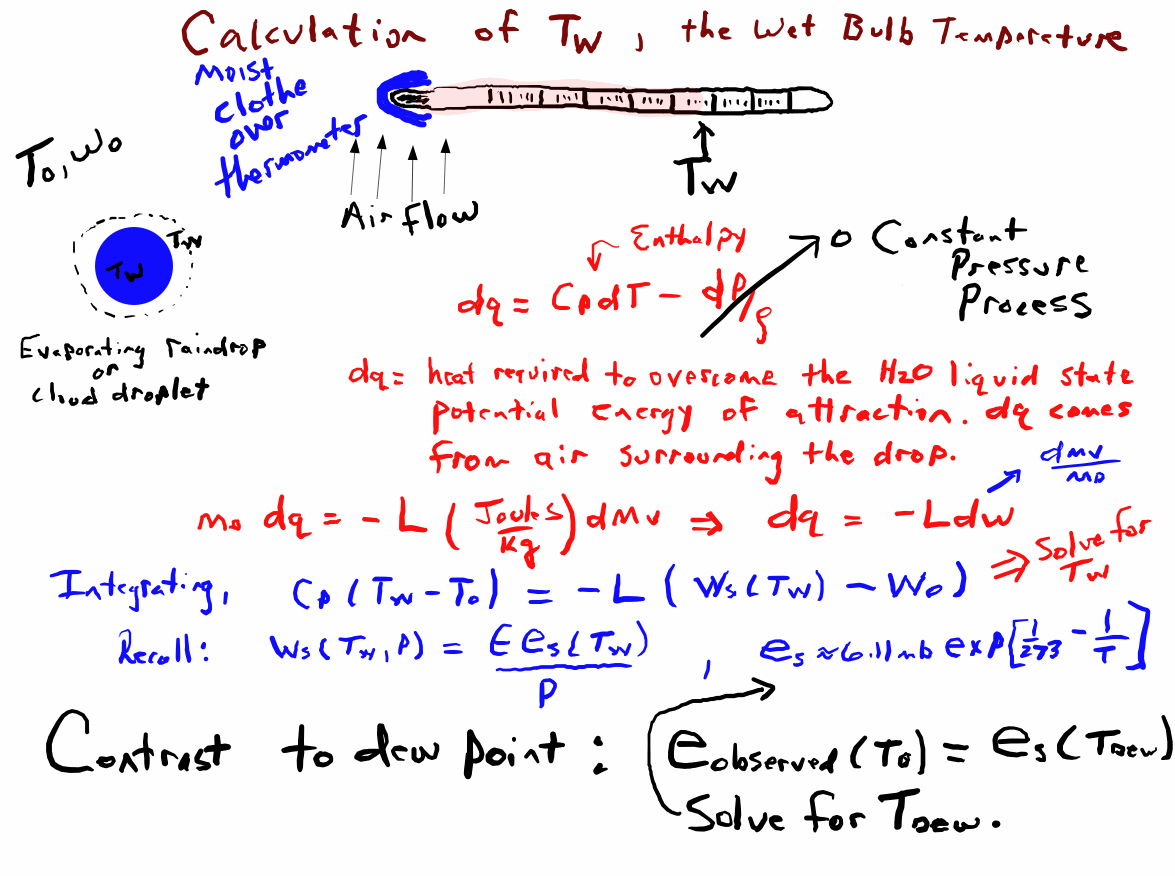 Calculation of Tw, the Wet Bulb Temperature
Moist
clothe
over
thermometer
To, wo
Tw
Air flow
Tw
Tw
Evaporating raindrop
or
cloud droplet
Enthalpy
dq = CpdT - dP/ρ
0 Constant
Pressure
Process
dq = heat required to overcome the H2O liquid state
potential energy of attraction. dq comes
from air surrounding the drop.
dmv/mo
mo dq = -L (Joules/Kg) dMv ⇒ dq = -Ldw
⇒ Solve for
Tw
Integrating, Cp (Tw - To) = -L (Ws(Tw) - Wo)
Recall: Ws(Tw, P) = E es(Tw)/P , es ≈ 6.11mb exp[1/273 - 1/T]
Contrast to dew point: eobserved(To) = es(TDew)
Solve for TDew.